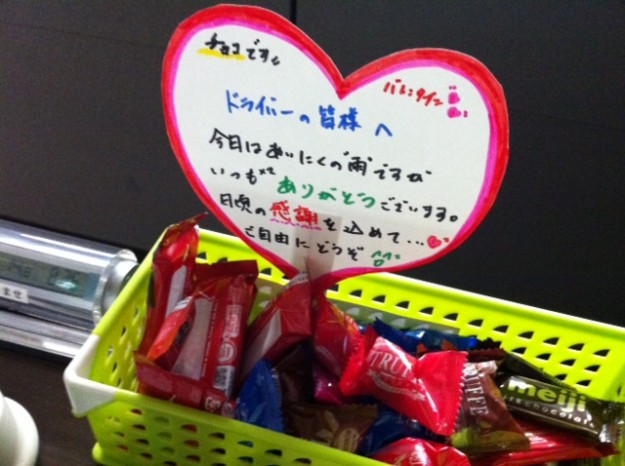 チョコです
バレンタイン
ドライバーの皆様へ
今日はあいにくの"雨"ですが
いつも ありがとうございます。
日頃の感謝を込めて...
ご自由にどうぞ
TRUF
UFFE
meiji
ませ